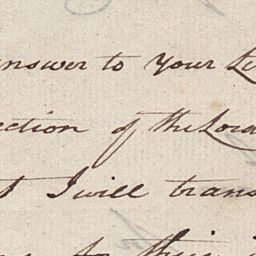 answer to your Le
ection of the Lord
t I will trans
to their